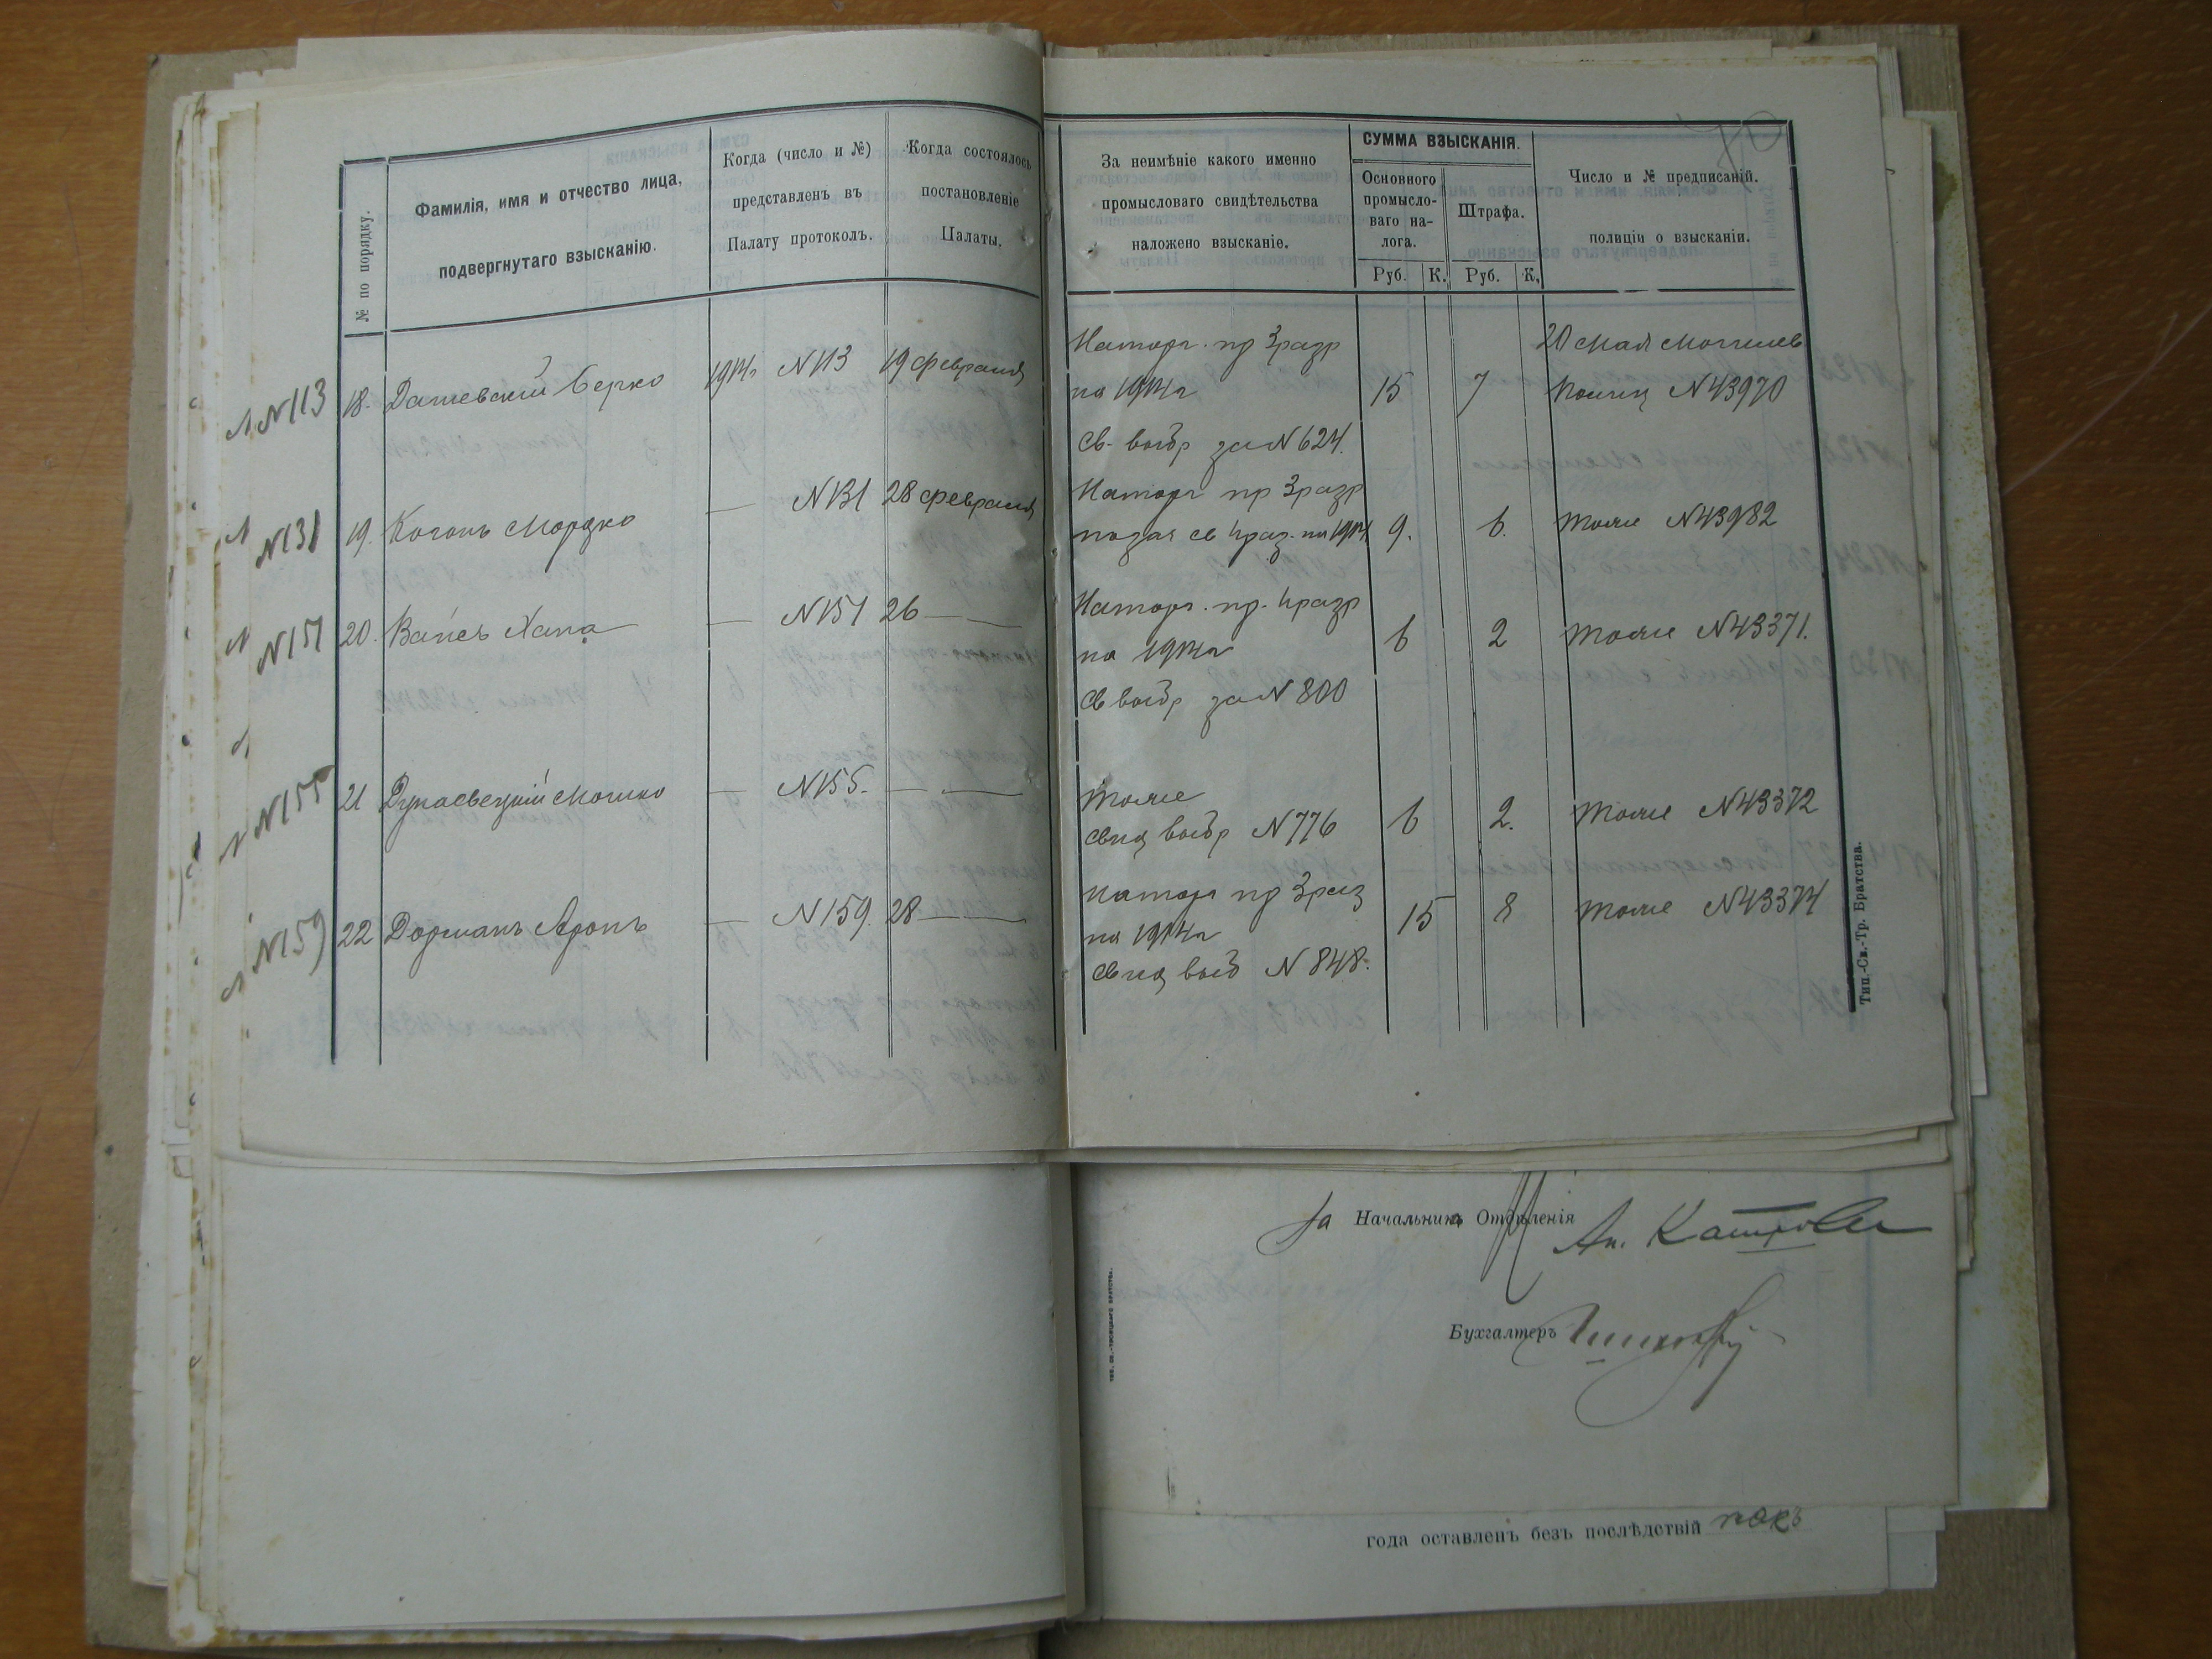 № по порядку.
Фамилія, имя и отчество лица,
подвергнутаго взысканію.
Когда (число и №)
представленъ въ
Палату протоколъ.
Когда состоялось
постановленіе
Палаты.
За неимѣніе какого именно
промысловаго свидѣтельства
наложено взысканіе.
СУММА ВЗЫСКАНІЯ.
Основного
промысло-
ваго на-
лога.
Штрафа.
Руб. К. Руб. К.
Число и № предписаній.
полиціи о взысканіи.
70
N113 18. Дашевский Берко 1914г N113 19 февраля
На торг. пр 3 разр
на 1914г 15 7
Св. выбр за N 624.
20 мая Могилев
Полиц N43970
N131 19. Когонъ Мордко — N131 28 февраля
На торг пр 3 разр
подая св 4 раз. на 1914 9. 6. тоже N43982
N151 20. Вайсъ Хана — N151 26 —
На торг. пр. 4 разр
на 1914г 6 2 тоже N43371.
Св выбр за N 800
N155 21 Дунаевецкій Мошко — N155. — —
тоже
Свид выбр N776 6 2. тоже N43372
N159 22 Дорманъ Аронъ — N159. 28 —
на торг пр 3 раз
на 1914г 15 8 тоже N43374
Свид выб N 848.
Тип.-Св.-Тр. Братства.
За Начальника Отдѣленія
Бухгалтеръ
года оставленъ безъ послѣдствій